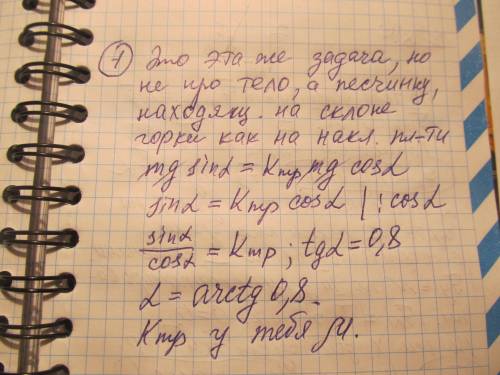 ① Это эта же задача, но
не про тело, а песчинку,
находящ. на склоне
горки как на накл. пл-ти
mg sinα = Kтр mg cosα
sinα = Kтр cosα | : cosα
sinα/cosα = Kтр ; tgα = 0,8
α = arctg 0,8.
Kтр у тебя μ.